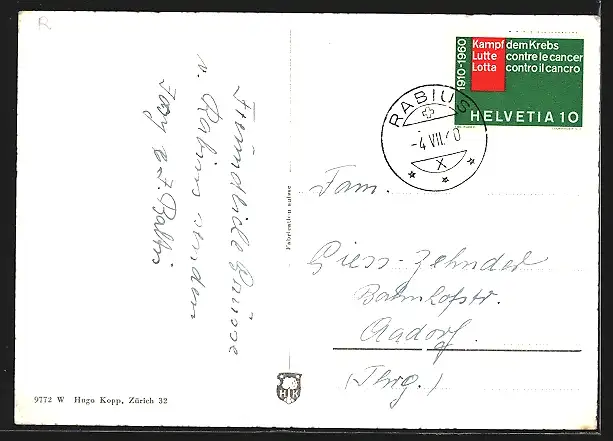 R
Freundliche Grüsse
v. Rabius senden
Fabrication suisse
9772 W Hugo Kopp, Zürich 32
HK
1910-1960
Kampf dem Krebs
Lutte contre le cancer
Lotta contro il cancro
HELVETIA 10
RABIUS
-4.VII. 0
X
Fam.
Giess-Zehnder
Bahnhofstr.
Aadorf.
(Thrg.)